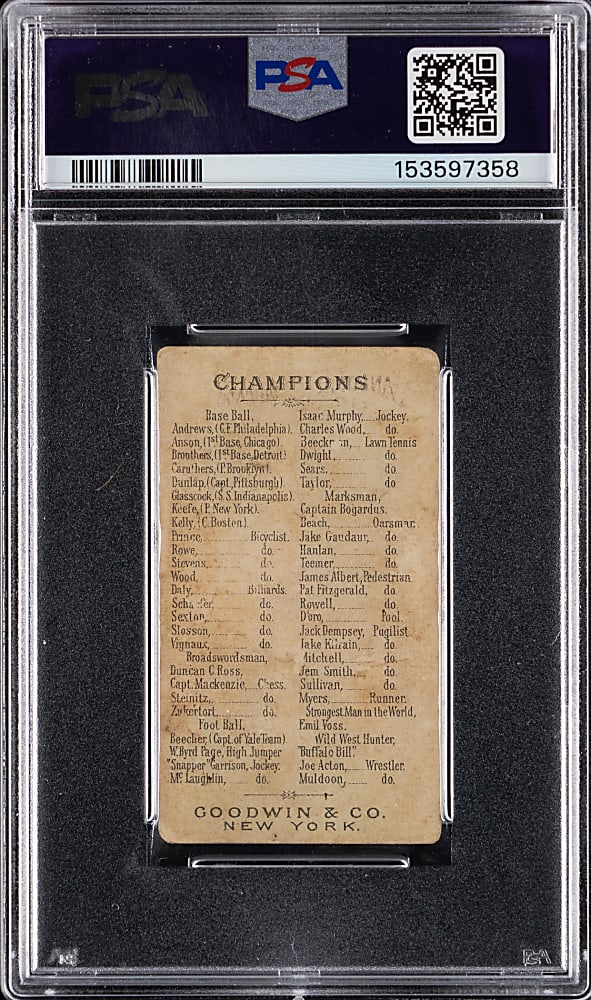 PSA
PSA
153597358
CHAMPIONS
Base Ball,
Andrews, (C.F. Philadelphia).
Anson, (1st Base, Chicago).
Brouthers, (1st Base, Detroit)
Caruthers, (P. Brooklyn).
Dunlap, (Capt. Pittsburgh).
Glasscock, (S.S. Indianapolis).
Keefe, (P. New York).
Kelly, (C. Boston).
Prince, Bicyclist.
Rowe, do.
Stevens, do.
Wood, do.
Daly, Billiards.
Schaefer, do.
Sexton, do.
Slosson, do.
Vignaux, do.
Broadswordsman,
Duncan C Ross,
Capt. Mackenzie, Chess.
Steinitz, do.
Zukertort, do.
Foot Ball,
Beecher, (Capt. of Yale Team)
W. Byrd Page, High Jumper
"Snapper" Garrison, Jockey.
Mc Laughlin, do.
Isaac Murphy, Jockey.
Charles Wood, do.
Beeckman, Lawn Tennis
Dwight, do.
Sears, do.
Taylor, do
Marksman,
Captain Bogardus.
Beach, Oarsman.
Jake Gaudaur, do.
Hanlan, do.
Teemer, do.
James Albert, Pedestrian
Pat Fitzgerald, do.
Rowell, do.
D'oro, Pool.
Jack Dempsey, Pugilist.
Jake Kilrain, do.
Mitchell, do.
Jem Smith, do.
Sullivan, do.
Myers, Runner.
Strongest Man in the World,
Emil Voss.
Wild West Hunter,
"Buffalo Bill"
Joe Acton, Wrestler.
Muldoon, do.
GOODWIN & CO.
NEW YORK.
PSA